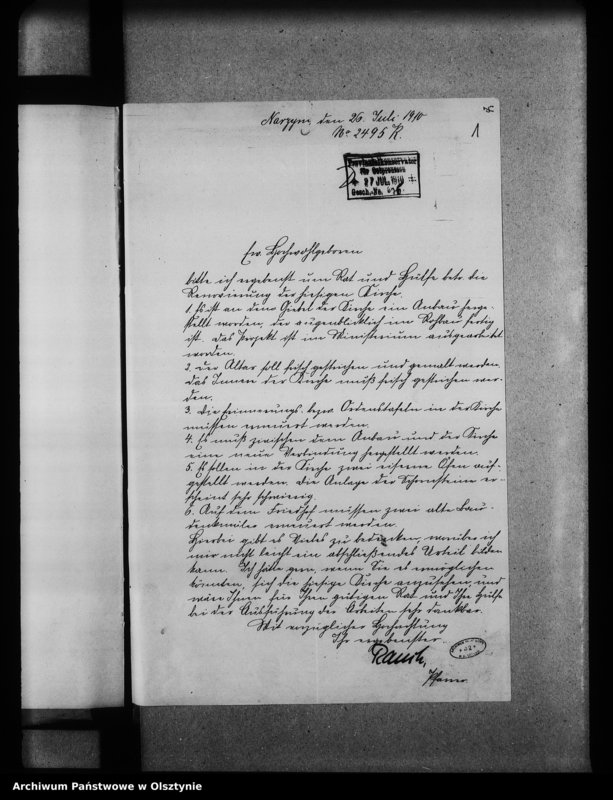 Narzym, den 26. Juli 1910
No 2495 R.
5.
1
Provinzialkonservator
für Ostpreussen
27 JUL. 1910
Gesch.-No.
Ew. Hochwohlgeboren
bitte ich ergebenst um Rat und Hülfe betr. die
Renovierung der hiesigen Kirche.
1. Es ist an dem Giebel der Kirche ein Anbau herge-
stellt worden, der augenblicklich im Rohbau fertig
ist. Das Projekt ist im Ministerium ausgearbeitet
worden.
2. Der Altar soll frisch gestrichen und gemalt werden.
Das Innere der Kirche muß frisch gestrichen wer-
den.
3. Die Erinnerungs- bezw. Ordenstafeln in der Kirche
müssen erneuert werden.
4. Es muß zwischen dem Anbau und der Kirche
eine neue Verbindung hergestellt werden.
5. Es sollen in der Kirche zwei eiserne Öfen auf-
gestellt werden. Die Anlage der Schornsteine er-
scheint sehr schwierig.
6. Auf dem Friedhof müssen zwei alte Bau-
denkmäler erneuert werden.
Hierbei gibt es Vieles zu bedenken, worüber ich
mir nicht leicht ein abschließendes Urteil bilden
kann. Ich bitte gern, wenn Sie es ermöglichen
könnten, sich die hiesige Kirche anzusehen, und
wäre Ihnen für Ihren gütigen Rat und Ihre Hülfe
bei der Ausführung der Arbeiten sehr dankbar.
Mit vorzüglicher Hochachtung
Ihr ergebenster
Rausch,
Pfarrer
Archiwum Państwowe w Olsztynie